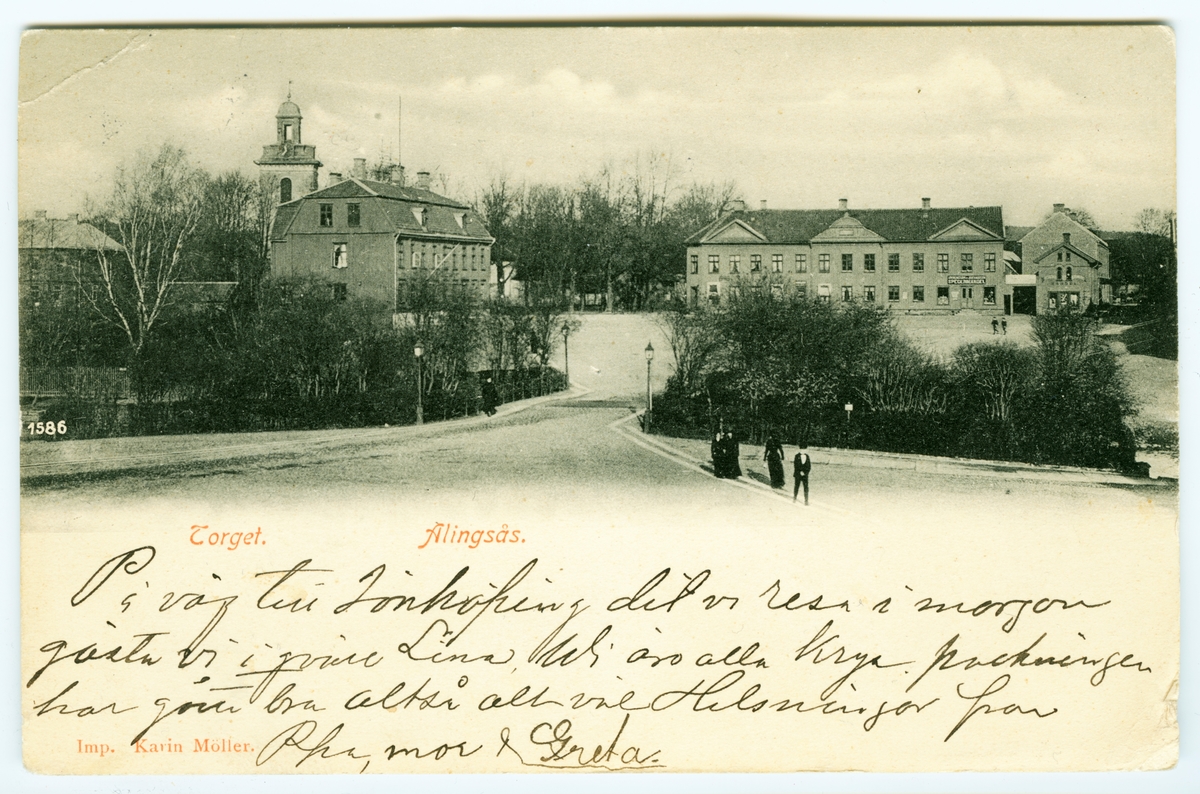 SPEGERIHANDEL
1586
Torget. Alingsås.
På väg till Jönköping dit vi resa i morgon
gästa vi i qväll Lina. Vi äro alla krya. packningen
har gått bra altså allt väl Helsningar från
Ppa, mor & Greta.
Imp. Karin Möller.